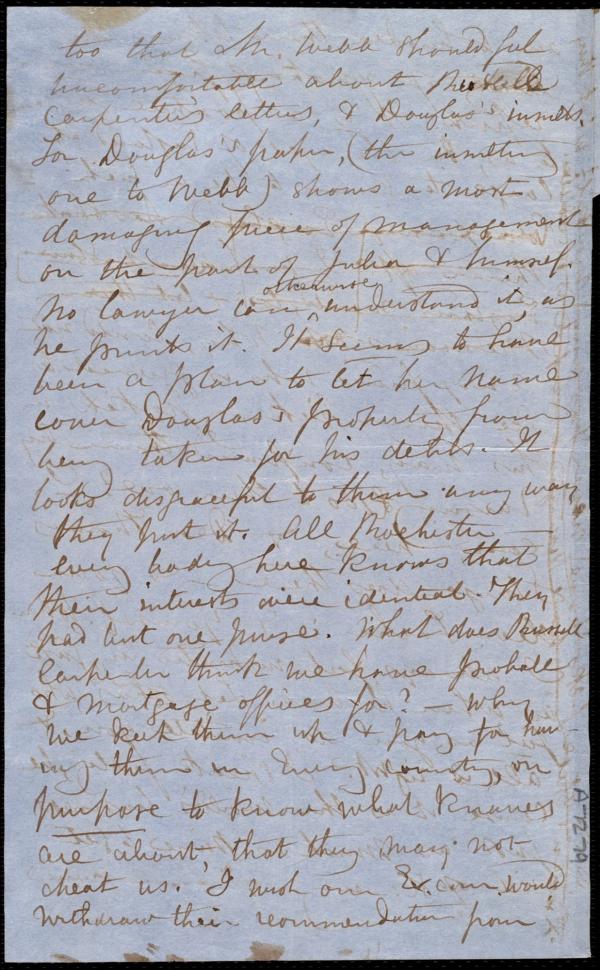 too that Mr. Webb should feel
uncomfortable about Russell
Carpenter's letters, & Douglas's insults.
For Douglas's paper, (the insulting
one to Webb) shows a most
damaging piece of management
on the part of Julia & himself.
No lawyer can otherwise understand it, as
he prints it. It seems to have
been a plan to let her name
cover Douglas's property from
being taken for his debts. It
looks disgraceful to them any way
they put it. All Rochester —
every body here knows that
their interests were identical. They
had but one purse. What does Russell
Carpenter think we have probate
& mortgage offices for? — Why
we keep them up & pay for hav-
ing them in every county, on
purpose to know what knaves
are about, that they may not
cheat us. I wish our Ex. Com. would
withdraw their recommendation from
A-72.79